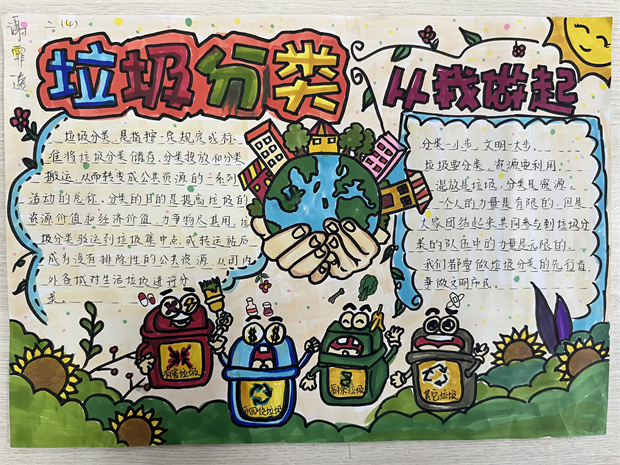 二(4)
谢霏逸
垃圾分类
从我做起
垃圾分类,是指按一定规定或标
准将垃圾分类储存、分类投放和分类
搬运,从而转变成公共资源的一系列
活动的总称。分类的目的是提高垃圾的
资源价值和经济价值,力争物尽其用。垃
圾分类投送到垃圾集中点或转运站后
成为没有排除性的公共资源。从国内
外各城对生活垃圾进行分
类。
分类一小步,文明一大步。
垃圾要分类,资源要利用。
混放是垃圾,分类是资源。
一个人的力量是有限的,但是
大家团结起来共同参与到垃圾分
类的队伍中的力量是无限的。
我们都要做垃圾分类的先行者,
争做文明市民。
有害垃圾
可回收垃圾
厨余垃圾
其它垃圾